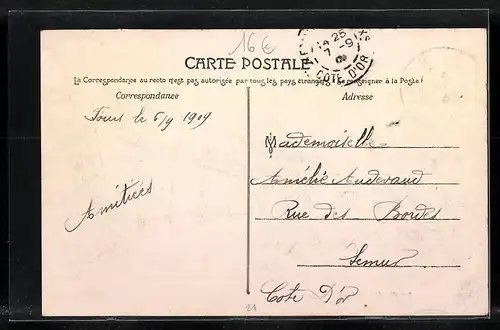 16 €
CARTE POSTALE
La Correspondance au recto n'est pas autorisée par tous les pays étrangers (Se renseigner à la Poste)
Correspondance
Adresse
14 25
7 -9
09
COTE D'OR
Fours le 6/9 1909
Amitiés
Mademoiselle
Amélie Andevaud
Rue des Bordes
Semur
Cote D'or